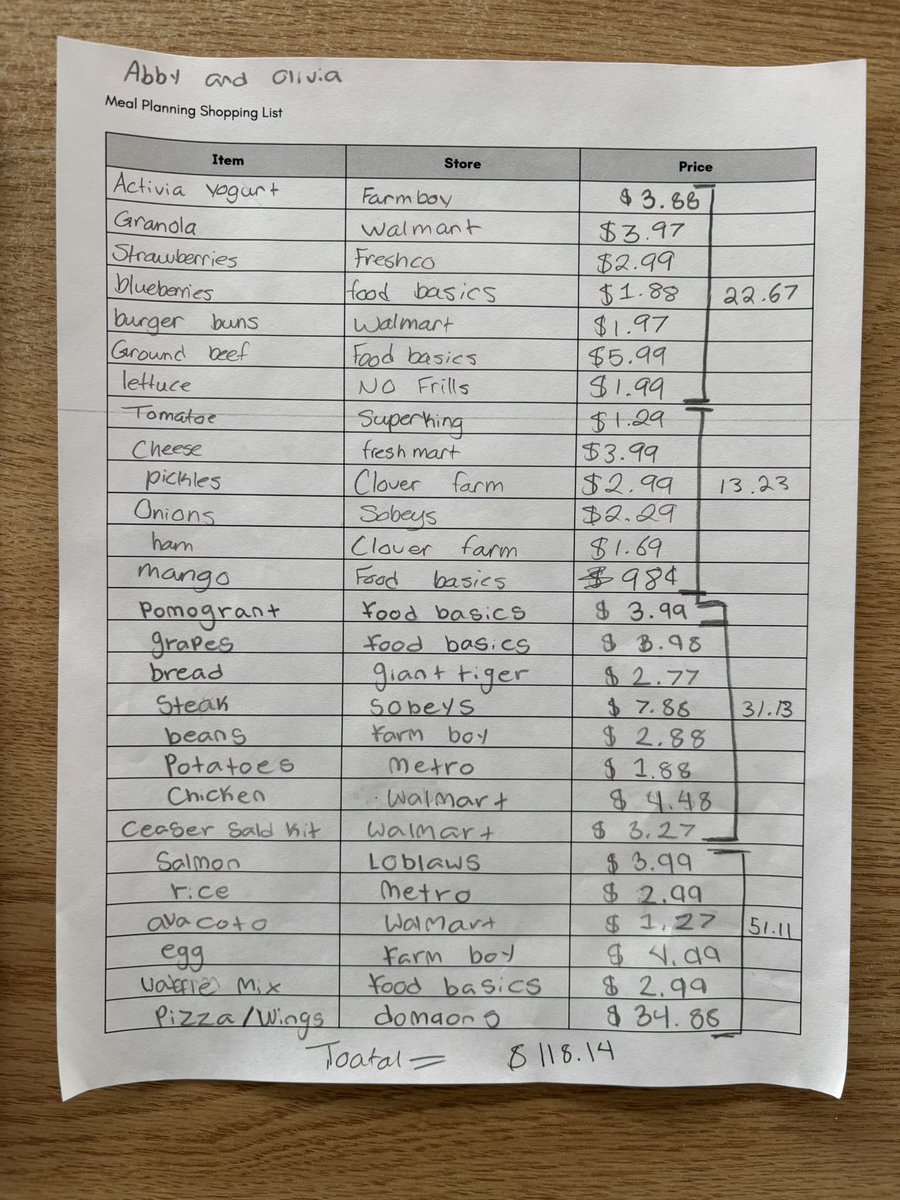 Abby and Olivia
Meal Planning Shopping List
Item Store Price
Activia yogurt Farmboy $3.88
Granola Walmart $3.97
Strawberries Freshco $2.99
blueberries food basics $1.88 22.67
burger buns Walmart $1.97
Ground beef Food basics $5.99
lettuce NO Frills $1.99
Tomatoe Superking $1.29
Cheese fresh mart $3.99
pickles Clover farm $2.99 13.23
Onions Sobeys $2.29
ham Clover farm $1.69
mango Food basics 98¢
Pomogrant food basics $3.99
grapes food basics $3.98
bread giant tiger $2.77
Steak Sobeys $7.88 31.13
beans farm boy $2.88
Potatoes metro $1.88
Chicken Walmart $4.48
Ceaser Sald Kit Walmart $3.27
Salmon Loblaws $3.99
rice metro $2.99
avacoto Walmart $1.27 51.11
egg farm boy $4.99
Mix food basics $2.99
Pizza/Wings $34.88
Toatal = $118.14